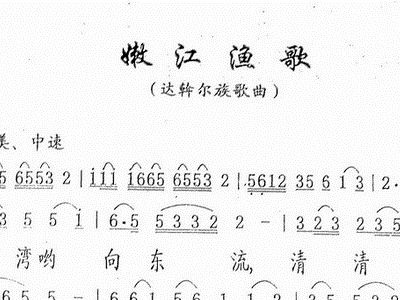 嫩江渔歌
(达斡尔族歌曲)
美、中速
5 6553 2 | i i i i665 6553 2 | 5612 35 6 1 3 | 2·
3 5 5 i | 6·5 5 3 3 2 2 - | 3 2 3 2 3 5
湾哟 向东 流, 清 清